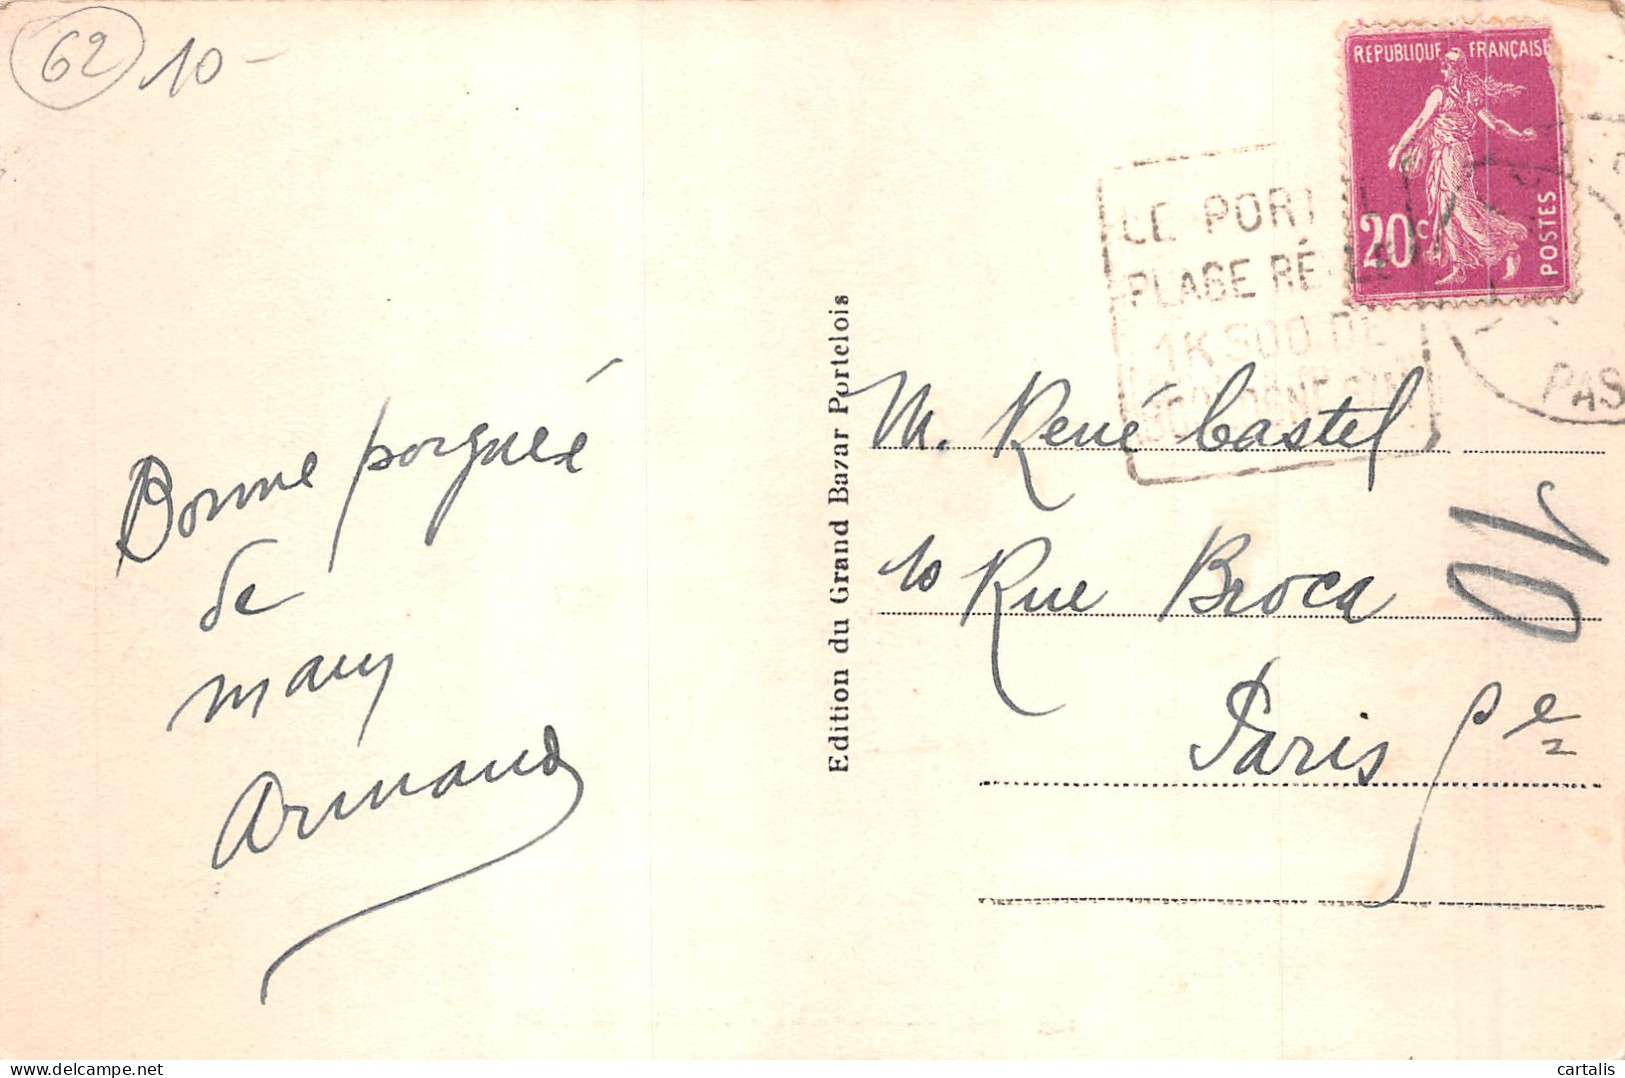 62 10-
REPUBLIQUE FRANÇAISE
20c
POSTES
LE PORTEL
PLAGE RÉ
1K500 DE
PAS
Edition du Grand Bazar Portelois
Bonne poignée
de
main
Armand
M. René Castel
10 Rue Broca
Paris 5e
10
cartalis